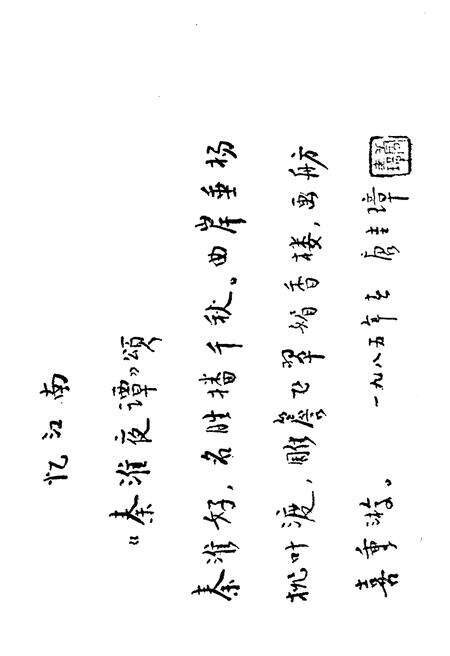 忆江南
《秦淮夜谭》颂
秦淮好，名胜播千秋。曲岸垂杨
桃叶渡，雕簷飞翠媚香楼，画舫
喜重游。 一九八五年 唐圭璋